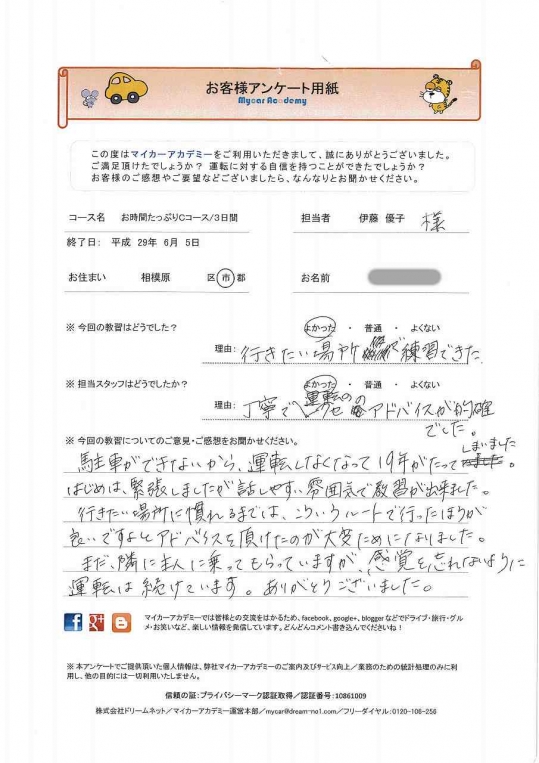 お客様アンケート用紙
Mycar Academy
この度はマイカーアカデミーをご利用いただきまして、誠にありがとうございました。
ご満足頂けたでしょうか？ 運転に対する自信を持つことができたでしょうか？
お客様のご感想やご要望などございましたら、なんなりとお聞かせください。
コース名 お時間たっぷりCコース/3日間 担当者 伊藤 優子 様
終了日： 平成 29年 6月 5日
お住まい 相模原 区 市 郡 お名前
※ 今回の教習はどうでした？ よかった ・ 普通 ・ よくない
理由： 行きたい場所 で練習できた
※ 担当スタッフはどうでしたか？ よかった ・ 普通 ・ よくない
理由： 丁寧で、運転のクセの アドバイスが的確
でした。
※ 今回の教習についてのご意見・ご感想をお聞かせください。
駐車ができないから、運転しなくなって19年がたってしまいました。
はじめは、緊張しましたが話しやすい雰囲気で教習が出来ました。
行きたい場所に慣れるまでは、こういうルートで行ったほうが
良いですよとアドバイスを頂けたのが大変ためになりました。
まだ、隣に主人に乗ってもらっていますが、感覚を忘れないように
運転は続けています。ありがとうございました。
マイカーアカデミーでは皆様との交流をはかるため、facebook、google+、blogger などでドライブ・旅行・グル
メ・お笑いなど、楽しい情報を発信しています。どんどんコメント書き込んでくださいね！
※ 本アンケートでご提供頂いた個人情報は、弊社マイカーアカデミーのご案内及びサービス向上／業務のための統計処理のみに利
用し、他の目的には一切利用いたしません。
信頼の証：プライバシーマーク認証取得／認証番号：10861009
株式会社ドリームネット／マイカーアカデミー運営本部／mycar@dream-no1.com／フリーダイヤル：0120-106-256